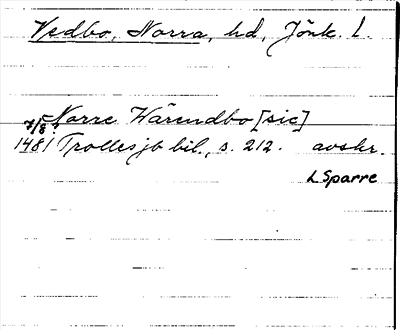 Vedbo, Norra, hd, Jönk. l.
Norre Wärendbo [sic]
7/8 1481 Trolles jb bil., s. 212. avskr.
L Sparre